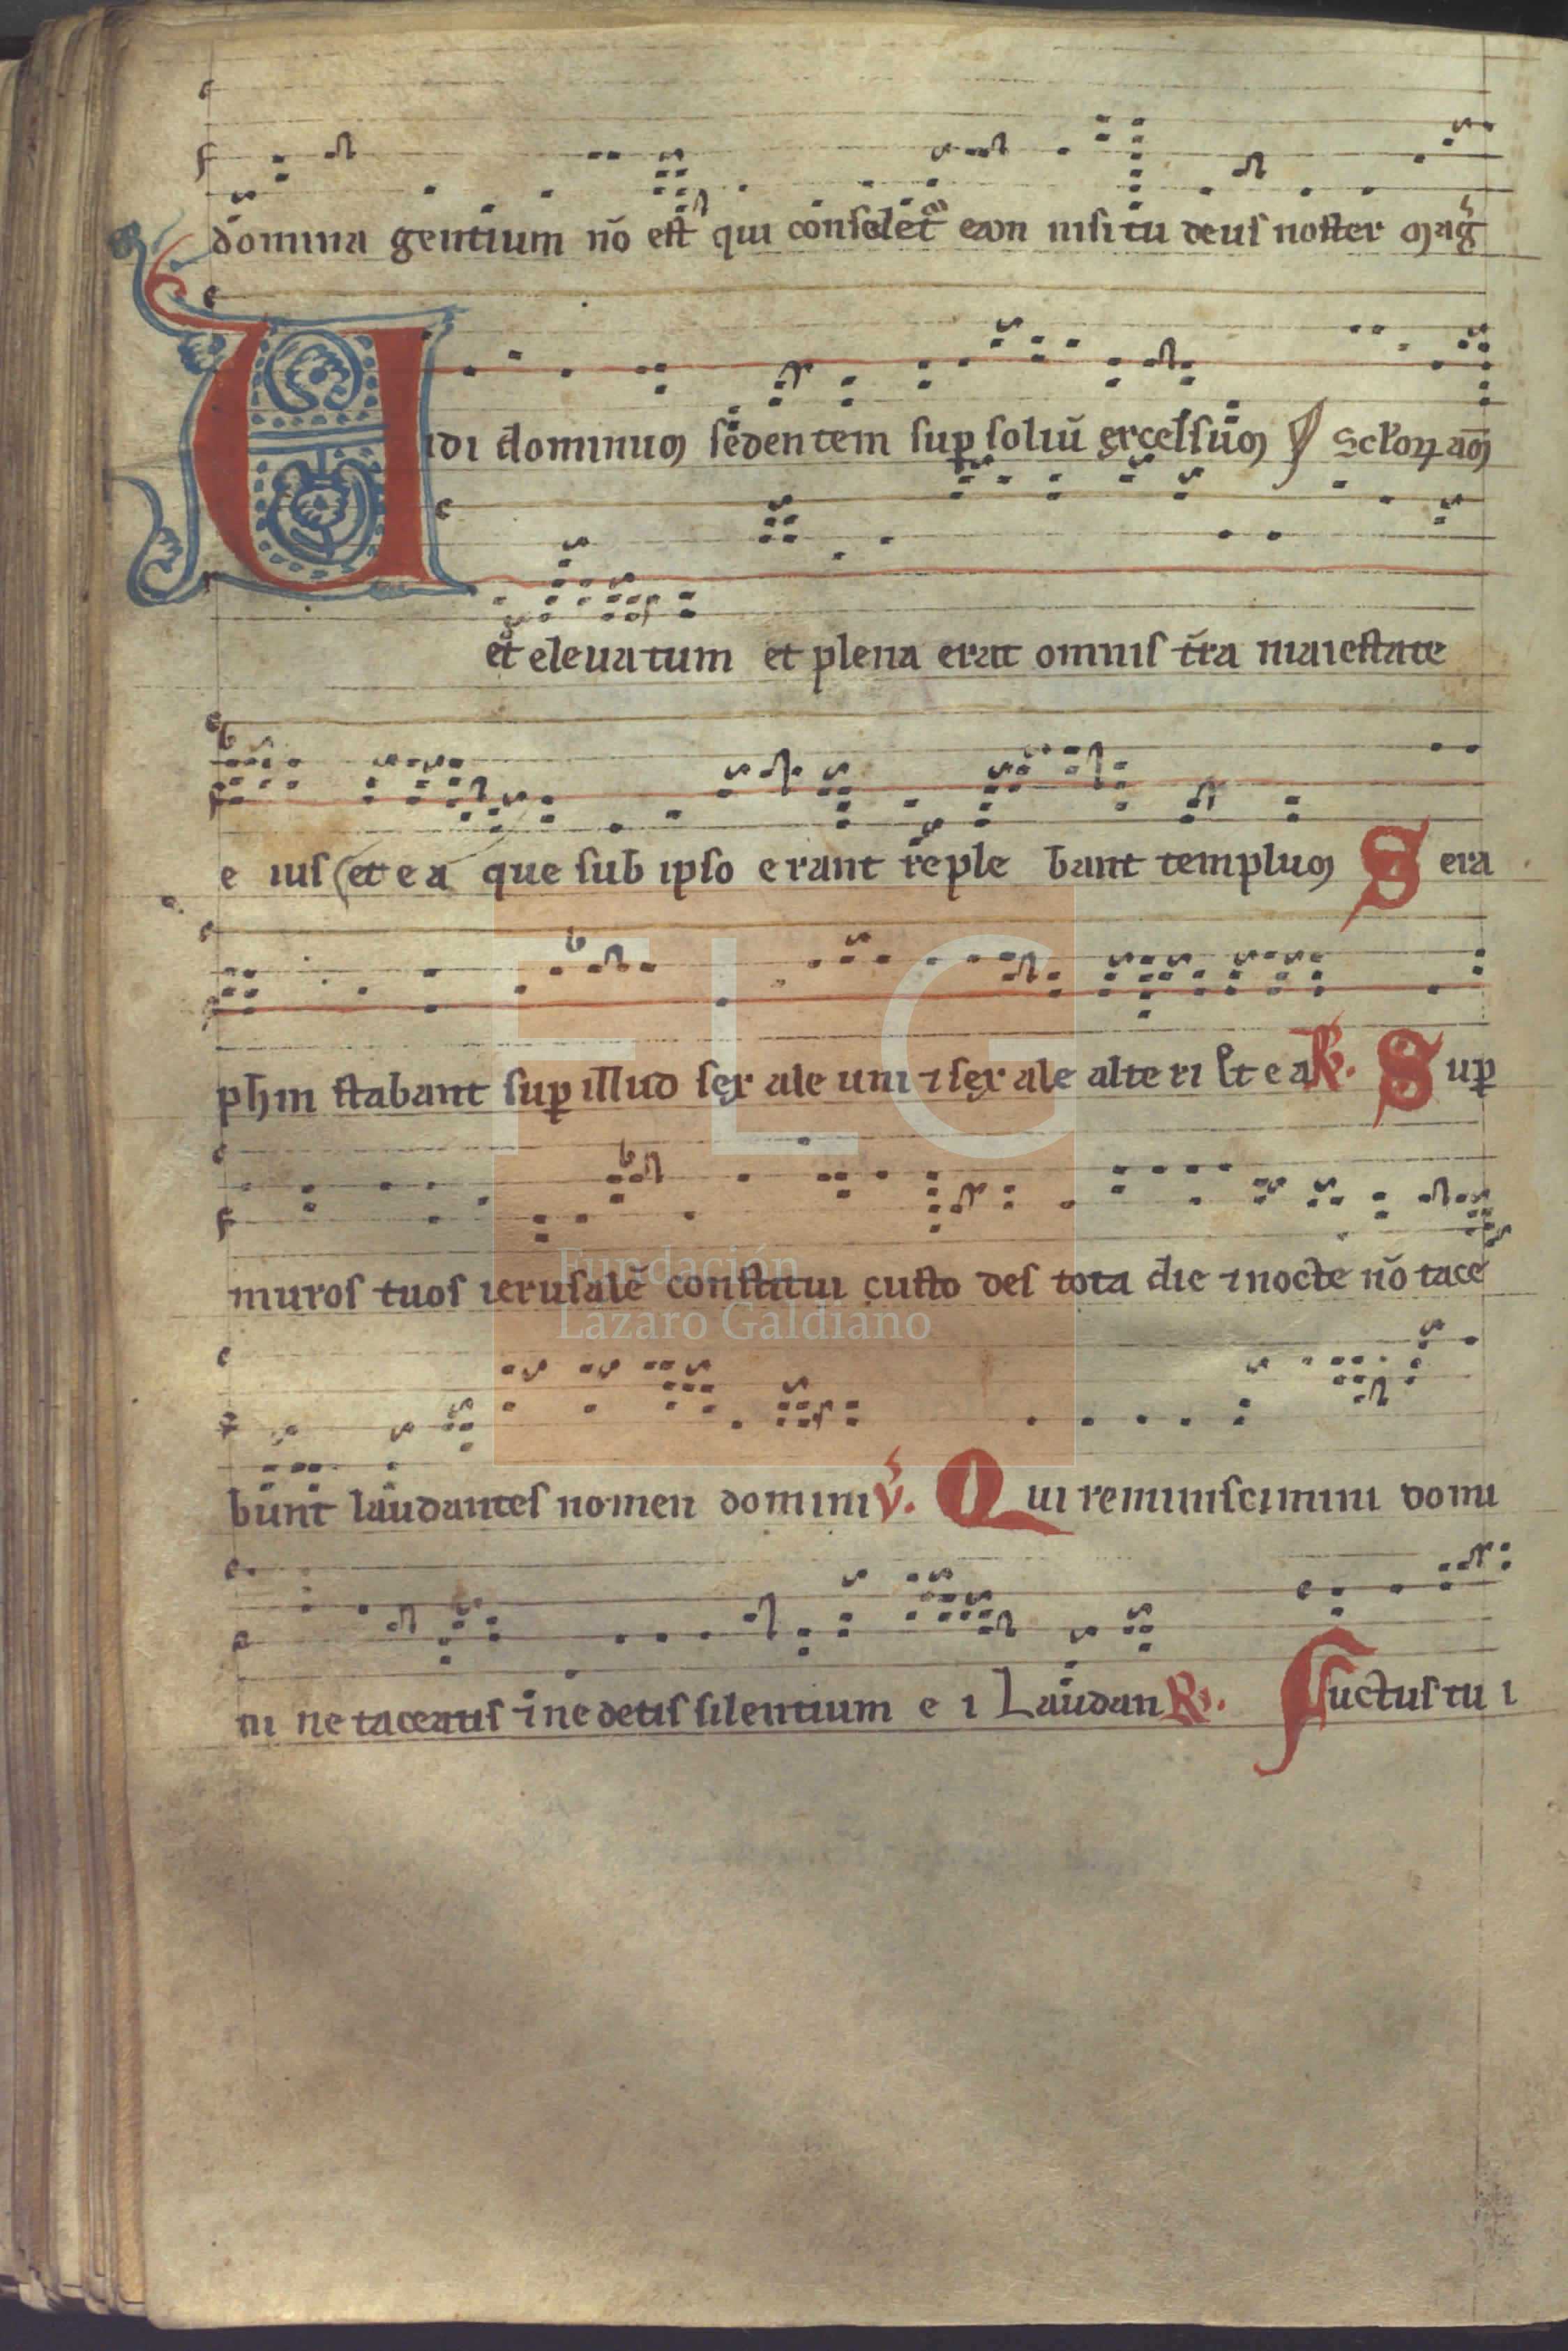 domina gentium nō est qui consolet᷑ eam nisi tu deus noster Mag̃
Uidi dominum sedentem sup̱ soliū excelsum
et eleuatum et plena erat omnis t̄ra maiestate
e ius et e a que sub ipso erant reple bant templum Sera
phin stabant sup̱ illud sex ale uni ⁊ sex ale alte ri Et e a R. Sup̱
muros tuos ierusalē constitui custo des tota die ⁊ nocte nō tace
bunt laudantes nomen domini V. Qui reminiscimini domi
ni ne taceatis ⁊ ne detis silentium e i Laudan R. Fluctus tu i
FLG
Fundación
Lázaro Galdiano